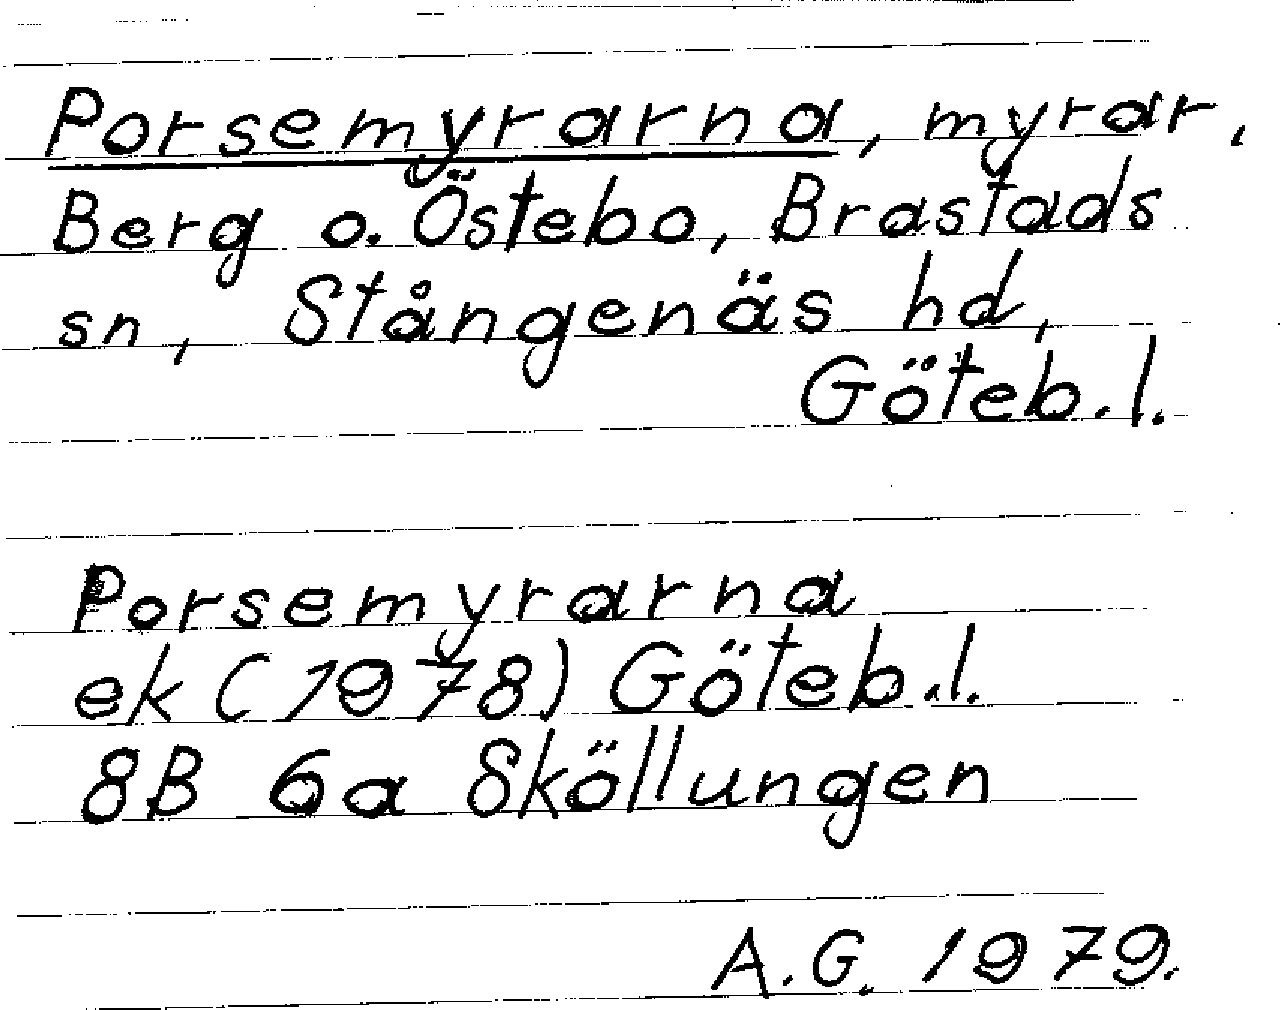 Porsemyrarna, myrar.
Berg o. Östebo, Brastads
sn, Stångenäs hd,
Göteb. l.
Porsemyrarna
ek (1978) Göteb. l.
8B 6a Sköllungen
A.G. 1979.